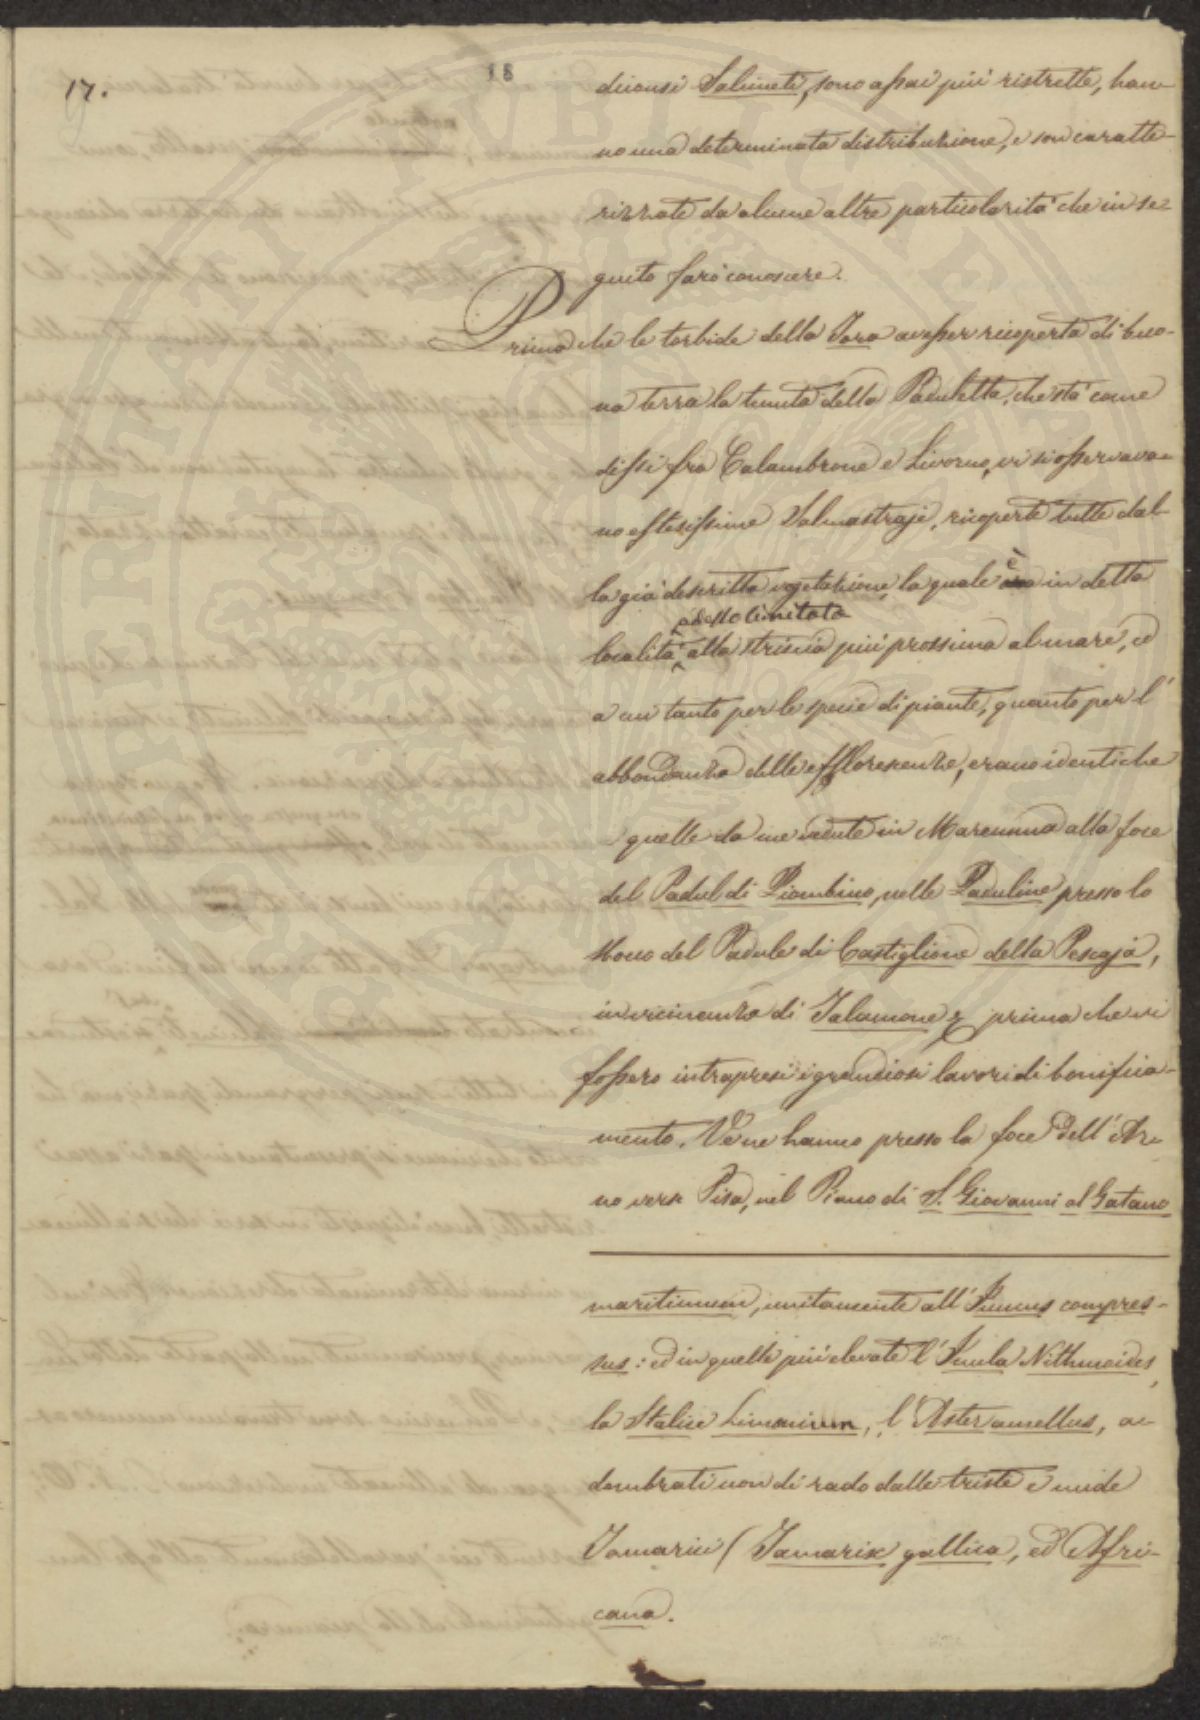 17.
18
diconsi Salineti, sono assai più ristrette, han-
no una determinata distribuzione, e son caratte-
rizzate da alcune altre particolarità che in se-
guito farò conoscere.
Prima che le torbide della Tora avesser ricoperta di buo-
na terra la tenuta della Paduletta, che sta come
dissi fra Calambrone e Livorno, vi si osservava-
no estesissime Salmastraje, ricoperte tutte dal-
la già descritta vegetazione, la quale è in detta
adesso limitata
località alla striscia più prossima al mare, e
a un tanto per le specie di piante, quanto per l'
abbondanza delle efflorescenze, erano identiche
a quelle da me vedute in Maremma alla foce
del Padul di Piombino, nelle Paduline presso lo
sbocco del Padule di Castiglione della Pescaja,
in vicinanza di Talamone prima che vi
fossero intrapresi i grandiosi lavori di bonifica-
mento. Ve ne hanno presso la foce dell'Ar-
no verso Pisa, nel Piano di S. Giovanni al Gatano
maritimum, unitamente all'Juncus compres-
sus: ed in quelle più elevate l'Inula Nithmoides,
la Statice Limonium, l'Aster amellus, a-
dombrati non di rado dalle triste e umide
Tamarici (Tamarix gallica, ed Afri-
cana.